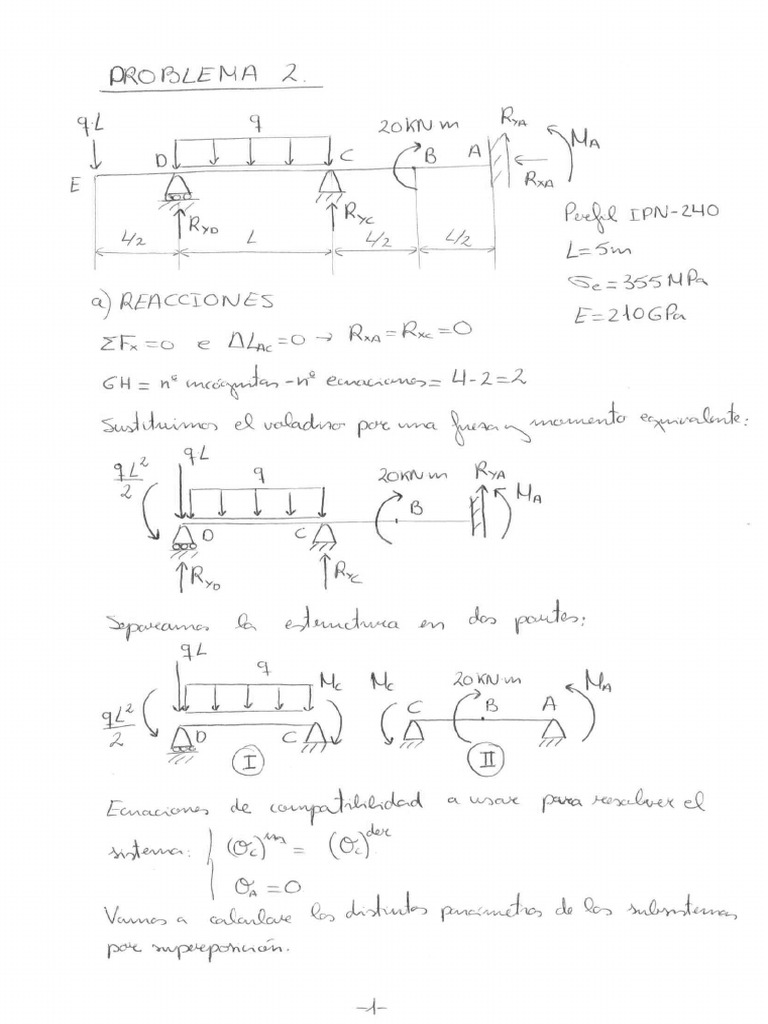 PROBLEMA 2.
q·L
q
20 KN m
R_YA
M_A
D
C
B
A
E
R_XA
R_YD
R_YC
L/2
L
L/2
L/2
Perfil IPN-240
L=5m
σe=355MPa
E=210GPa
a) REACCIONES
ΣFx=0 e ΔL_AC=0 → R_XA=R_XC=0
GH = nº incógnitas - nº ecuaciones = 4-2=2
Sustituimos el voladizo por una fuerza y momento equivalente:
qL²/2
qL
q
20KN m
R_YA
M_A
B
D
C
R_YD
R_YC
Separamos la estructura en dos partes:
qL
q
M_C
M_C
20KN·m
M_A
qL²/2
D
C
C
B
A
I
II
Ecuaciones de compatibilidad a usar para resolver el
sistema: (θc)^izq = (θc)^der
θ_A = 0
Vamos a calcular los distintos parámetros de los subsistemas
por superposición.
-1-